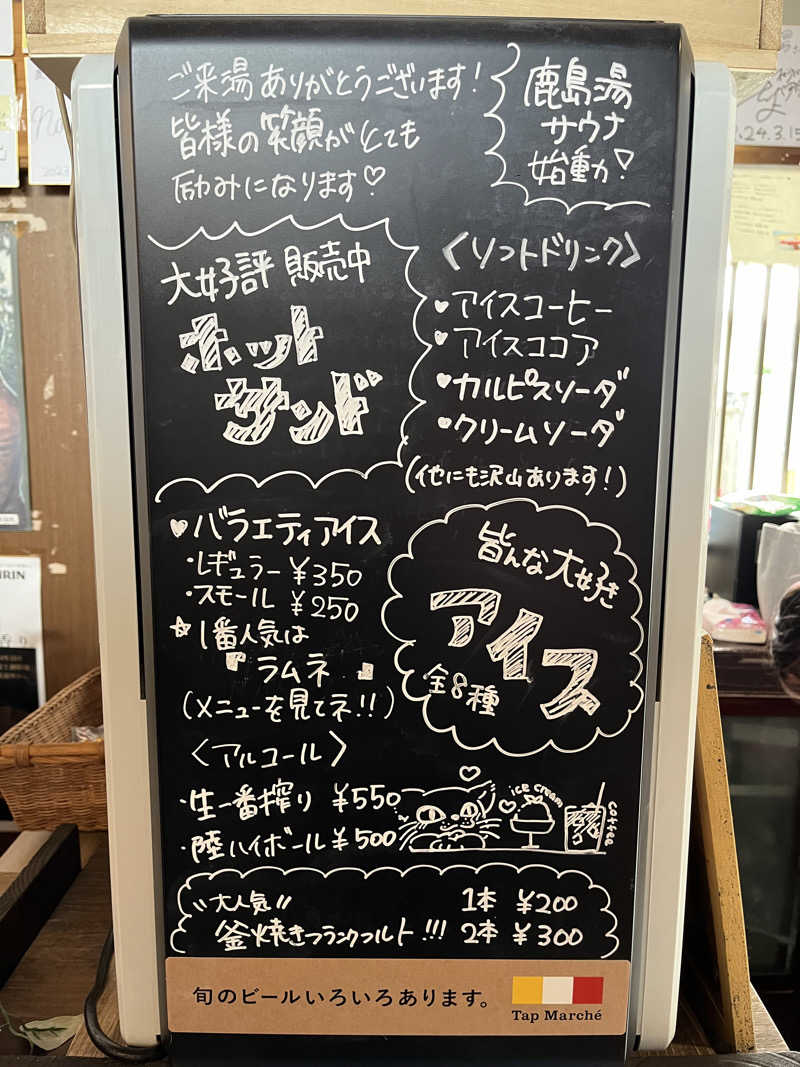 ご来湯ありがとうございます!
皆様の笑顔がとても
励みになります♡
鹿島湯
サウナ
始動カ!
大好評 販売中
ホット
サンド
〈ソフトドリンク〉
♥アイスコーヒー
♥アイスココア
♥カルピスソーダ
♥クリームソーダ
(他にも沢山あります!)
♥バラエティアイス
・レギュラー ¥350
・スモール ¥250
☆1番人気は
"ラムネ"
(メニューを見てネ!!)
皆んな大好き
アイス
全8種
〈アルコール〉
・生一番搾り ¥550
・陸ハイボール ¥500
ice cream
coffee
"大人気"
釜焼きフランクフルト!!!
1本 ¥200
2本 ¥300
旬のビールいろいろあります。
Tap Marché
2023
24.3.15